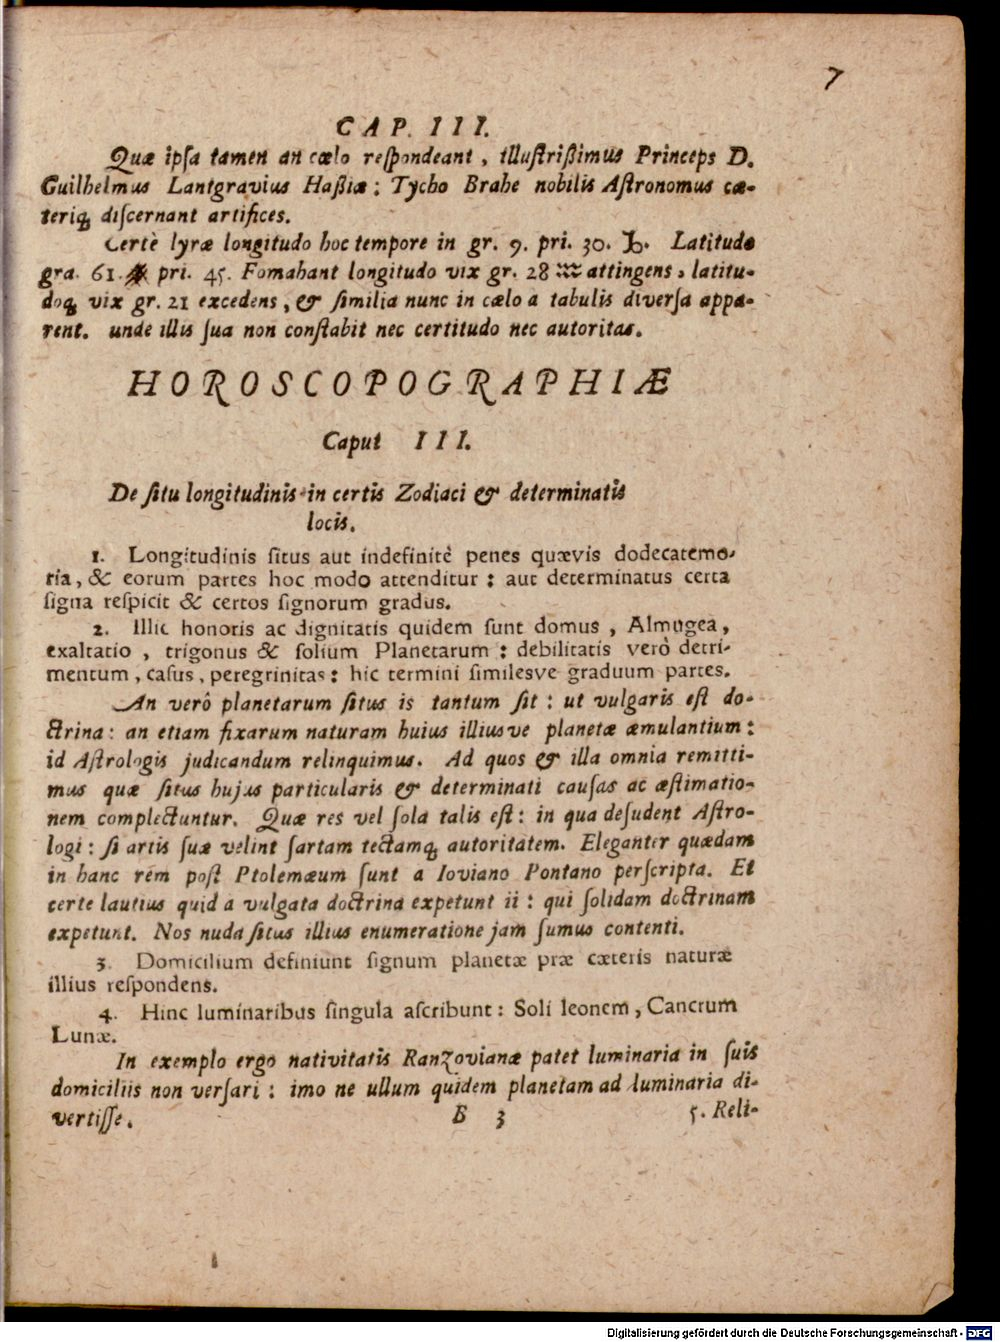 7
CAP. III.
Quæ ipſa tamen an cœlo reſpondeant, illuſtriſsimus Princeps D.
Guilhelmus Lantgravius Haßiæ; Tycho Brahe nobilis Aſtronomus cæ-
teriq́; diſcernant artifices.
Certè lyræ longitudo hoc tempore in gr. 9. pri. 30. ♑. Latitudo
gra. 61. pri. 45. Fomahant longitudo vix gr. 28 ♒ attingens, latitu-
doq́; vix gr. 21 excedens, & ſimilia nunc in cœlo a tabulis diverſa appa-
rent. unde illis ſua non conſtabit nec certitudo nec autoritas.
HOROSCOPOGRAPHIÆ
Caput III.
De ſitu longitudinis in certis Zodiaci & determinatis
locis.
1. Longitudinis ſitus aut indefinitè penes quævis dodecatemo-
ria, & eorum partes hoc modo attenditur: aut determinatus certa
ſigna reſpicit & certos ſignorum gradus.
2. Illic honoris ac dignitatis quidem ſunt domus, Almugea,
exaltatio, trigonus & ſolium Planetarum: debilitatis verò detri-
mentum, caſus, peregrinitas: hic termini ſimilesve graduum partes.
An verò planetarum ſitus is tantum ſit: ut vulgaris eſt do-
ctrina: an etiam fixarum naturam huius illiusve planetæ æmulantium:
id Aſtrologis judicandum relinquimus. Ad quos & illa omnia remitti-
mus quæ ſitus hujus particularis & determinati cauſas ac æſtimatio-
nem complectuntur. Quæ res vel ſola talis eſt: in qua deſudent Aſtro-
logi: ſi artis ſuæ velint ſartam tectamq́; autoritatem. Eleganter quædam
in hanc rem poſt Ptolemæum ſunt a Ioviano Pontano perſcripta. Et
certe lautius quid a vulgata doctrina expetunt ii: qui ſolidam doctrinam
expetunt. Nos nuda ſitus illius enumeratione jam ſumus contenti.
3. Domicilium definiunt ſignum planetæ præ cæteris naturæ
illius reſpondens.
4. Hinc luminaribus ſingula aſcribunt: Soli leonem, Cancrum
Lunæ.
In exemplo ergo nativitatis Ranzovianæ patet luminaria in ſuis
domiciliis non verſari: imo ne ullum quidem planetam ad luminaria di-
vertiſſe.
B 3
5. Reli-
Digitalisierung gefördert durch die Deutsche Forschungsgemeinschaft - DFG